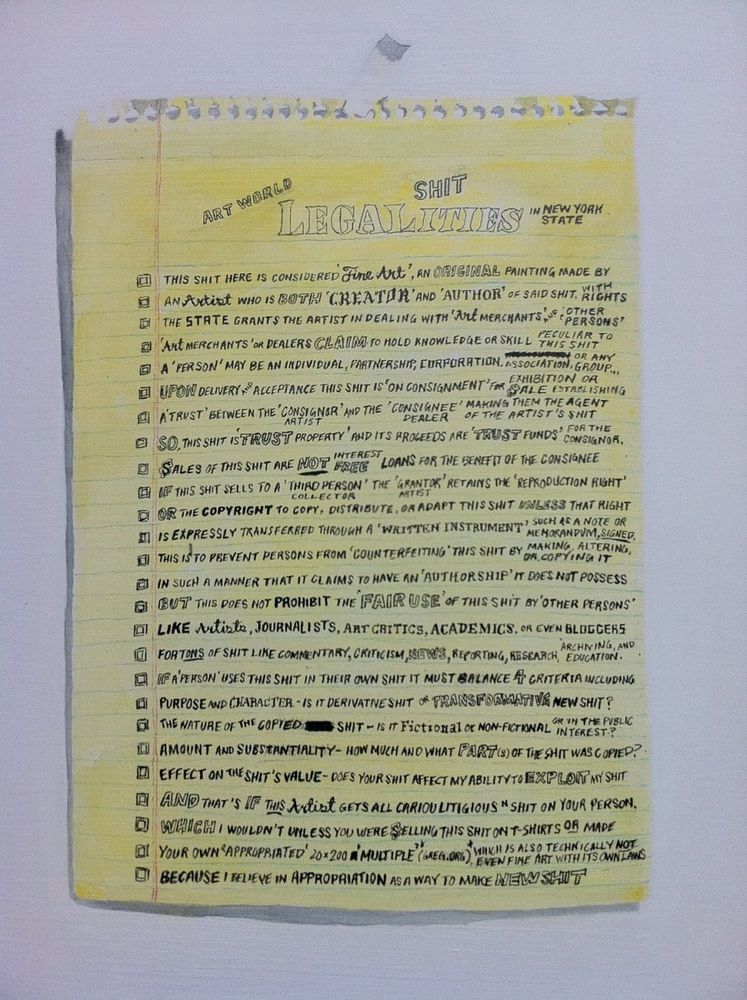 ART WORLD SHIT
LEGALITIES IN NEW YORK STATE
THIS SHIT HERE IS CONSIDERED 'Fine Art', AN ORIGINAL PAINTING MADE BY
AN Artist WHO IS BOTH 'CREATOR' AND 'AUTHOR' OF SAID SHIT. WITH RIGHTS
THE STATE GRANTS THE ARTIST IN DEALING WITH 'Art MERCHANTS', AND 'OTHER PERSONS'
'Art MERCHANTS' OR DEALERS CLAIM TO HOLD KNOWLEDGE OR SKILL PECULIAR TO THIS SHIT
A 'PERSON' MAY BE AN INDIVIDUAL, PARTNERSHIP, CORPORATION, ASSOCIATION, OR ANY GROUP...
UPON DELIVERY AND ACCEPTANCE THIS SHIT IS 'ON CONSIGNMENT' FOR EXHIBITION OR $ALE ESTABLISHING
A 'TRUST' BETWEEN THE 'CONSIGNOR' ARTIST AND THE 'CONSIGNEE' DEALER MAKING THEM THE AGENT OF THE ARTIST'S SHIT
SO, THIS SHIT IS 'TRUST PROPERTY' AND ITS PROCEEDS ARE 'TRUST FUNDS' FOR THE CONSIGNOR.
$ALES OF THIS SHIT ARE NOT INTEREST FREE LOANS FOR THE BENEFIT OF THE CONSIGNEE
IF THIS SHIT SELLS TO A 'THIRD PERSON' COLLECTOR THE 'GRANTOR' ARTIST RETAINS THE 'REPRODUCTION RIGHT'
OR THE COPYRIGHT TO COPY, DISTRIBUTE, OR ADAPT THIS SHIT UNLESS THAT RIGHT
IS EXPRESSLY TRANSFERRED THROUGH A 'WRITTEN INSTRUMENT' SUCH AS A NOTE OR MEMORANDUM, SIGNED.
THIS IS TO PREVENT PERSONS FROM 'COUNTERFEITING' THIS SHIT BY MAKING, ALTERING, OR COPYING IT
IN SUCH A MANNER THAT IT CLAIMS TO HAVE AN 'AUTHORSHIP' IT DOES NOT POSSESS
BUT THIS DOES NOT PROHIBIT THE 'FAIR USE' OF THIS SHIT BY 'OTHER PERSONS'
LIKE Artists, JOURNALISTS, ART CRITICS, ACADEMICS, OR EVEN BLOGGERS
FOR TONS OF SHIT LIKE COMMENTARY, CRITICISM, NEWS, REPORTING, RESEARCH, ARCHIVING, AND EDUCATION.
IF A 'PERSON' USES THIS SHIT IN THEIR OWN SHIT IT MUST BALANCE 4 CRITERIA INCLUDING
PURPOSE AND CHARACTER - IS IT DERIVATIVE SHIT OR TRANSFORMATIVE NEW SHIT?
THE NATURE OF THE COPIED SHIT - IS IT Fictional OR NON-FICTIONAL OR IN THE PUBLIC INTEREST?
AMOUNT AND SUBSTANTIALITY - HOW MUCH AND WHAT PART(S) OF THE SHIT WAS COPIED?
EFFECT ON THE SHIT'S VALUE - DOES YOUR SHIT AFFECT MY ABILITY TO EXPLOIT MY SHIT
AND THAT'S IF THIS Artist GETS ALL CARIOU LITIGIOUS N SHIT ON YOUR PERSON,
WHICH I WOULDN'T UNLESS YOU WERE $ELLING THIS SHIT ON T-SHIRTS OR MADE
YOUR OWN 'APPROPRIATED' 20X200 'MULTIPLE' (GREG.ORG), WHICH IS ALSO TECHNICALLY NOT EVEN FINE ART WITH ITS OWN LAWS
BECAUSE I BELIEVE IN APPROPRIATION AS A WAY TO MAKE NEW SHIT